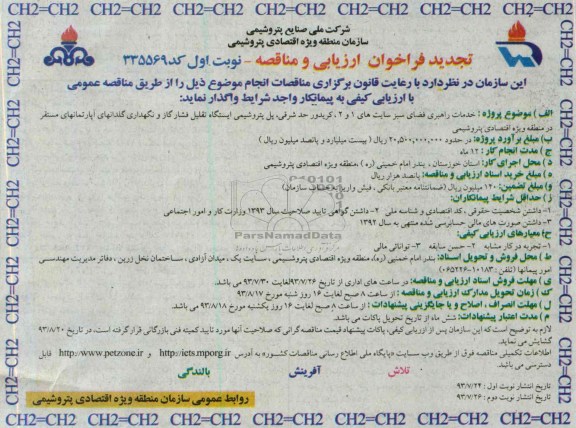 شرکت ملی صنایع پتروشیمی
سازمان منطقه ویژه اقتصادی پتروشیمی
تجدید فراخوان ارزیابی و مناقصه - نوبت اول کد ۳۳۵۵۶۹
این سازمان در نظر دارد با رعایت قانون برگزاری مناقصات انجام موضوع ذیل را از طریق مناقصه عمومی
با ارزیابی کیفی به پیمانکار واجد شرایط واگذار نماید:
الف ) موضوع پروژه : خدمات راهبری فضای سبز سایت های ۱ و ۲ ، کریدور حد شرقی، پل پتروشیمی ایستگاه تقلیل فشار گاز و نگهداری گلدانهای آپارتمانهای مستقر
در منطقه ویژه اقتصادی پتروشیمی
ب) مبلغ برآورد پروژه: در حدود ۲۰,۵۰۰,۰۰۰,۰۰۰ ریال ( بیست میلیارد و پانصد میلیون ریال )
ج ) مدت انجام کار : ۱۲ ماه
د ) محل اجرای کار: استان خوزستان ، بندر امام خمینی (ره) ،منطقه ویژه اقتصادی پتروشیمی
ه) مبلغ خرید اسناد ارزیابی و مناقصه: پانصد هزار ریال
و) مبلغ تضمین: ۱۲۰ میلیون ریال (ضمانتنامه معتبر بانکی ، فیش واریز به حساب سازمان)
ز) حداقل شرایط پیمانکاران:
۱- داشتن شخصیت حقوقی ، کد اقتصادی و شناسه ملی ۲- داشتن گواهی تایید صلاحیت سال ۱۳۹۳ وزارت کار و امور اجتماعی
۳- داشتن صورت های مالی حسابرسی شده منتهی به سال ۱۳۹۲
ح) معیارهای ارزیابی کیفی:
۱-تجربه در کار مشابه ۲- حسن سابقه ۳- توانائی مالی
ط ) محل فروش و تحویل اسناد: بندر امام خمینی (ره)، منطقه ویژه اقتصادی پتروشیمی ،سایت یک ، میدان آزادی ، ساختمان نخل زرین ، دفاتر مدیریت مهندسی
امور پیمانها (تلفن: ۱۰۱۸۳-۰۶۵۲۲۶)
ی ) مهلت فروش اسناد ارزیابی و مناقصه: در ساعت های اداری از تاریخ ۹۳/۷/۲۶ لغایت ۹۳/۷/۳۰ می باشد.
ک) زمان تحویل مدارک ارزیابی و مناقصه : از ساعت ۸ صبح لغایت ۱۶ روز شنبه مورخ ۹۳/۸/۱۷
ل) مهلت انصراف ، اصلاح و یا جایگزینی پیشنهادات : از ساعت ۸ صبح لغایت ۱۶ روز یکشنبه مورخ ۹۳/۸/۱۸ می باشد.
م ) مدت اعتبار پیشنهادات: شش ماه از تاریخ تحویل پاکات می باشد.
لازم به توضیح است که این سازمان پس از ارزیابی کیفی، پاکات پیشنهاد قیمت مناقصه گرانی که صلاحیت آنها مورد تایید کمیته فنی بازرگانی قرار گرفته است، در تاریخ ۹۳/۸/۲۰
گشایش می نماید.
اطلاعات تکمیلی مناقصه فوق از طریق وب سایت «پایگاه ملی اطلاع رسانی مناقصات کشور» به آدرس http://iets.mporg.ir و http://www.petzone.ir قابل
دسترسی می باشد.
تلاش آفرینش بالندگی
تاریخ انتشار نوبت اول : ۹۳/۷/۲۴
تاریخ انتشار نوبت دوم : ۹۳/۷/۲۶
روابط عمومی سازمان منطقه ویژه اقتصادی پتروشیمی
ParsNamadData
CH2=CH2 CH2=CH2 CH2=CH2 CH2=CH2 CH2=CH2 CH2=CH2